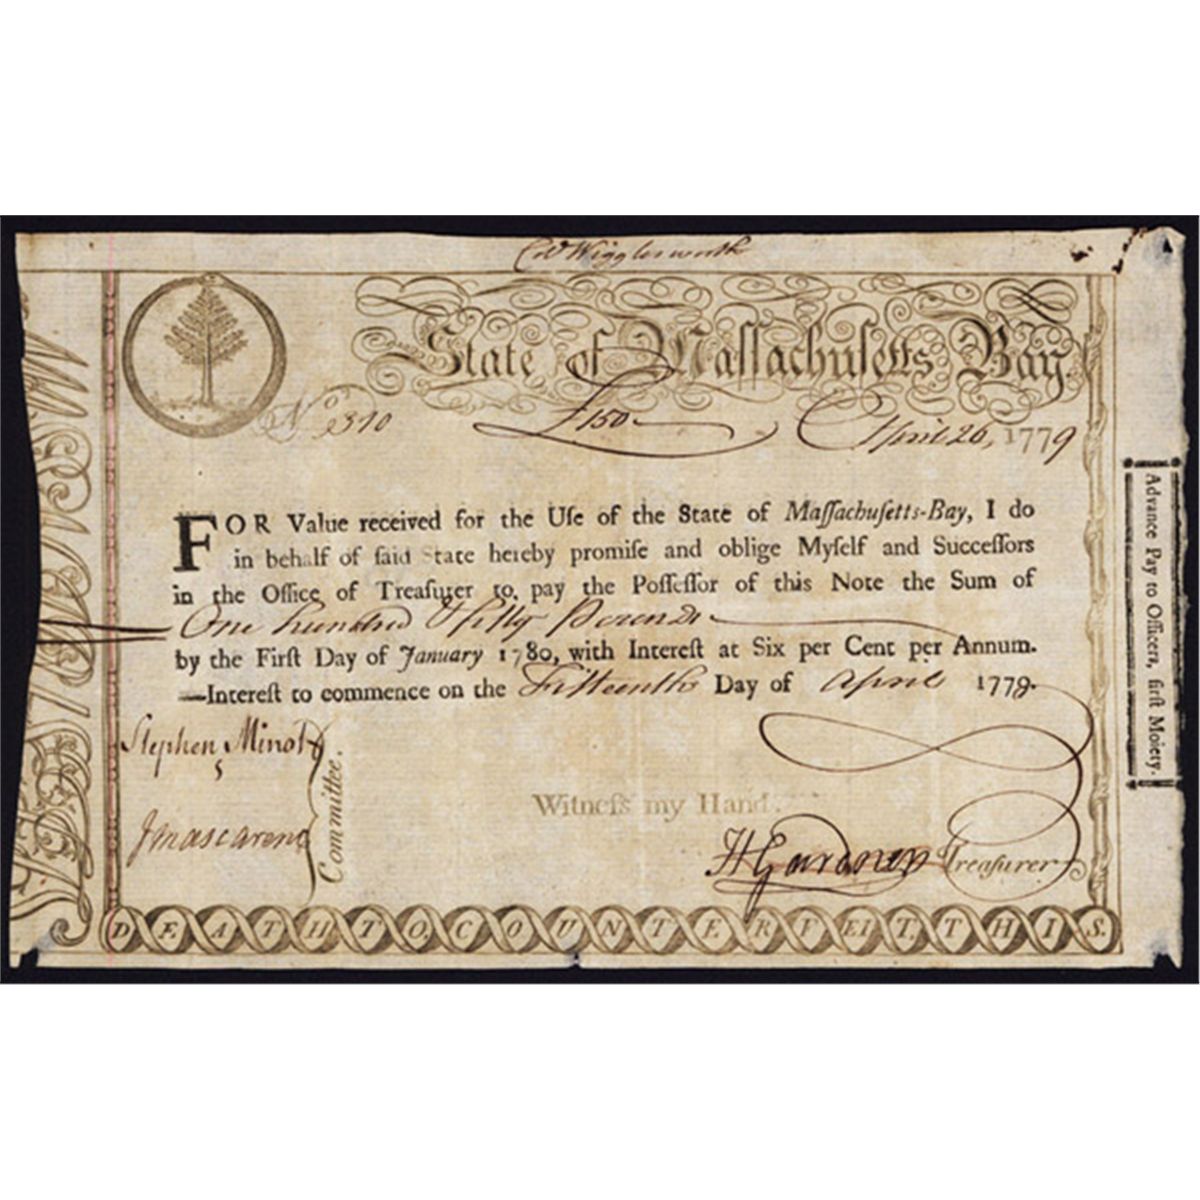 Col Wigglesworth
State of Maſſachuſetts Bay
No 2310 £150 April 26, 1779
FOR Value received for the Uſe of the State of Maſſachuſetts-Bay, I do
in behalf of ſaid State hereby promiſe and oblige Myſelf and Succeſſors
in the Office of Treaſurer to pay the Poſſeſſor of this Note the Sum of
One hundred & fifty Pounds
by the Firſt Day of January 1780, with Intereſt at Six per Cent per Annum.
—Intereſt to commence on the Fifteenth Day of April 1779.
Stephen Minot
J Mascarene
Committee.
Witneſs my Hand.
H Gardner Treaſurer
DEATH TO COUNTERFEIT THIS.
Advance Pay to Officers, firſt Moiety.